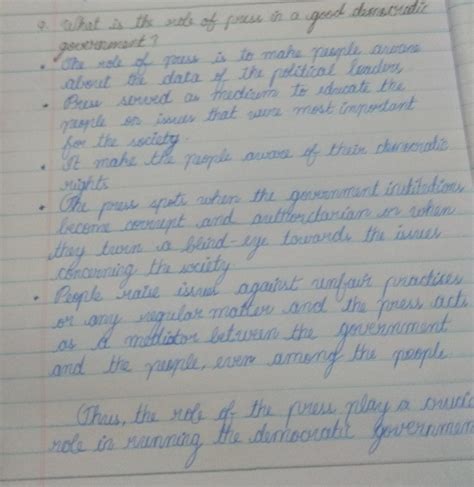 Q. What is the role of press in a good democratic
government?
• The role of press is to make people aware
about the data of the political leaders,
• Press served as medium to educate the
people on issues that were most important
for the society.
• It make the people aware of their democratic
rights
• The press spots when the government institutions
become corrupt and authordarian or when
they turn a blind-eye towards the issues
concerning the society
• People raise issues against unfair practises
or any regular matter and the press acts
as a mediator between the government
and the people, even among the people
Thus, the role of the press play a
role in running the democratic governmen